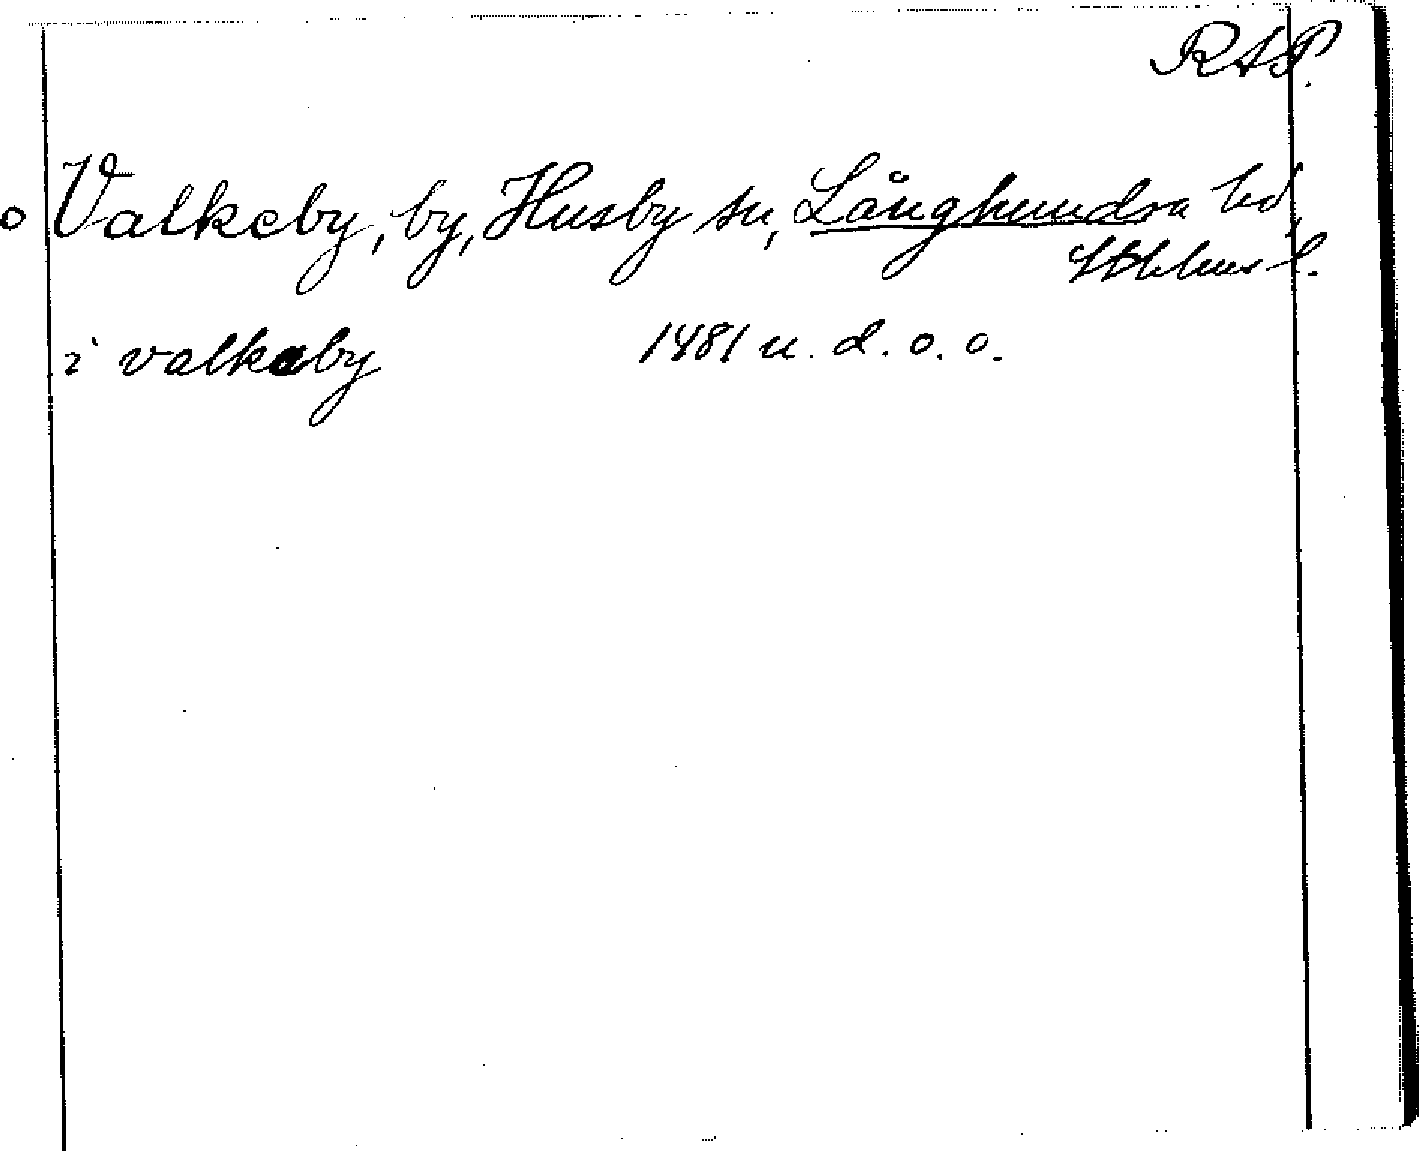 RAP.
o Valkeby, by, Husby sn, Långhundra hd,
Sthlms l.
i valkaby 1481 u. d. o. o.